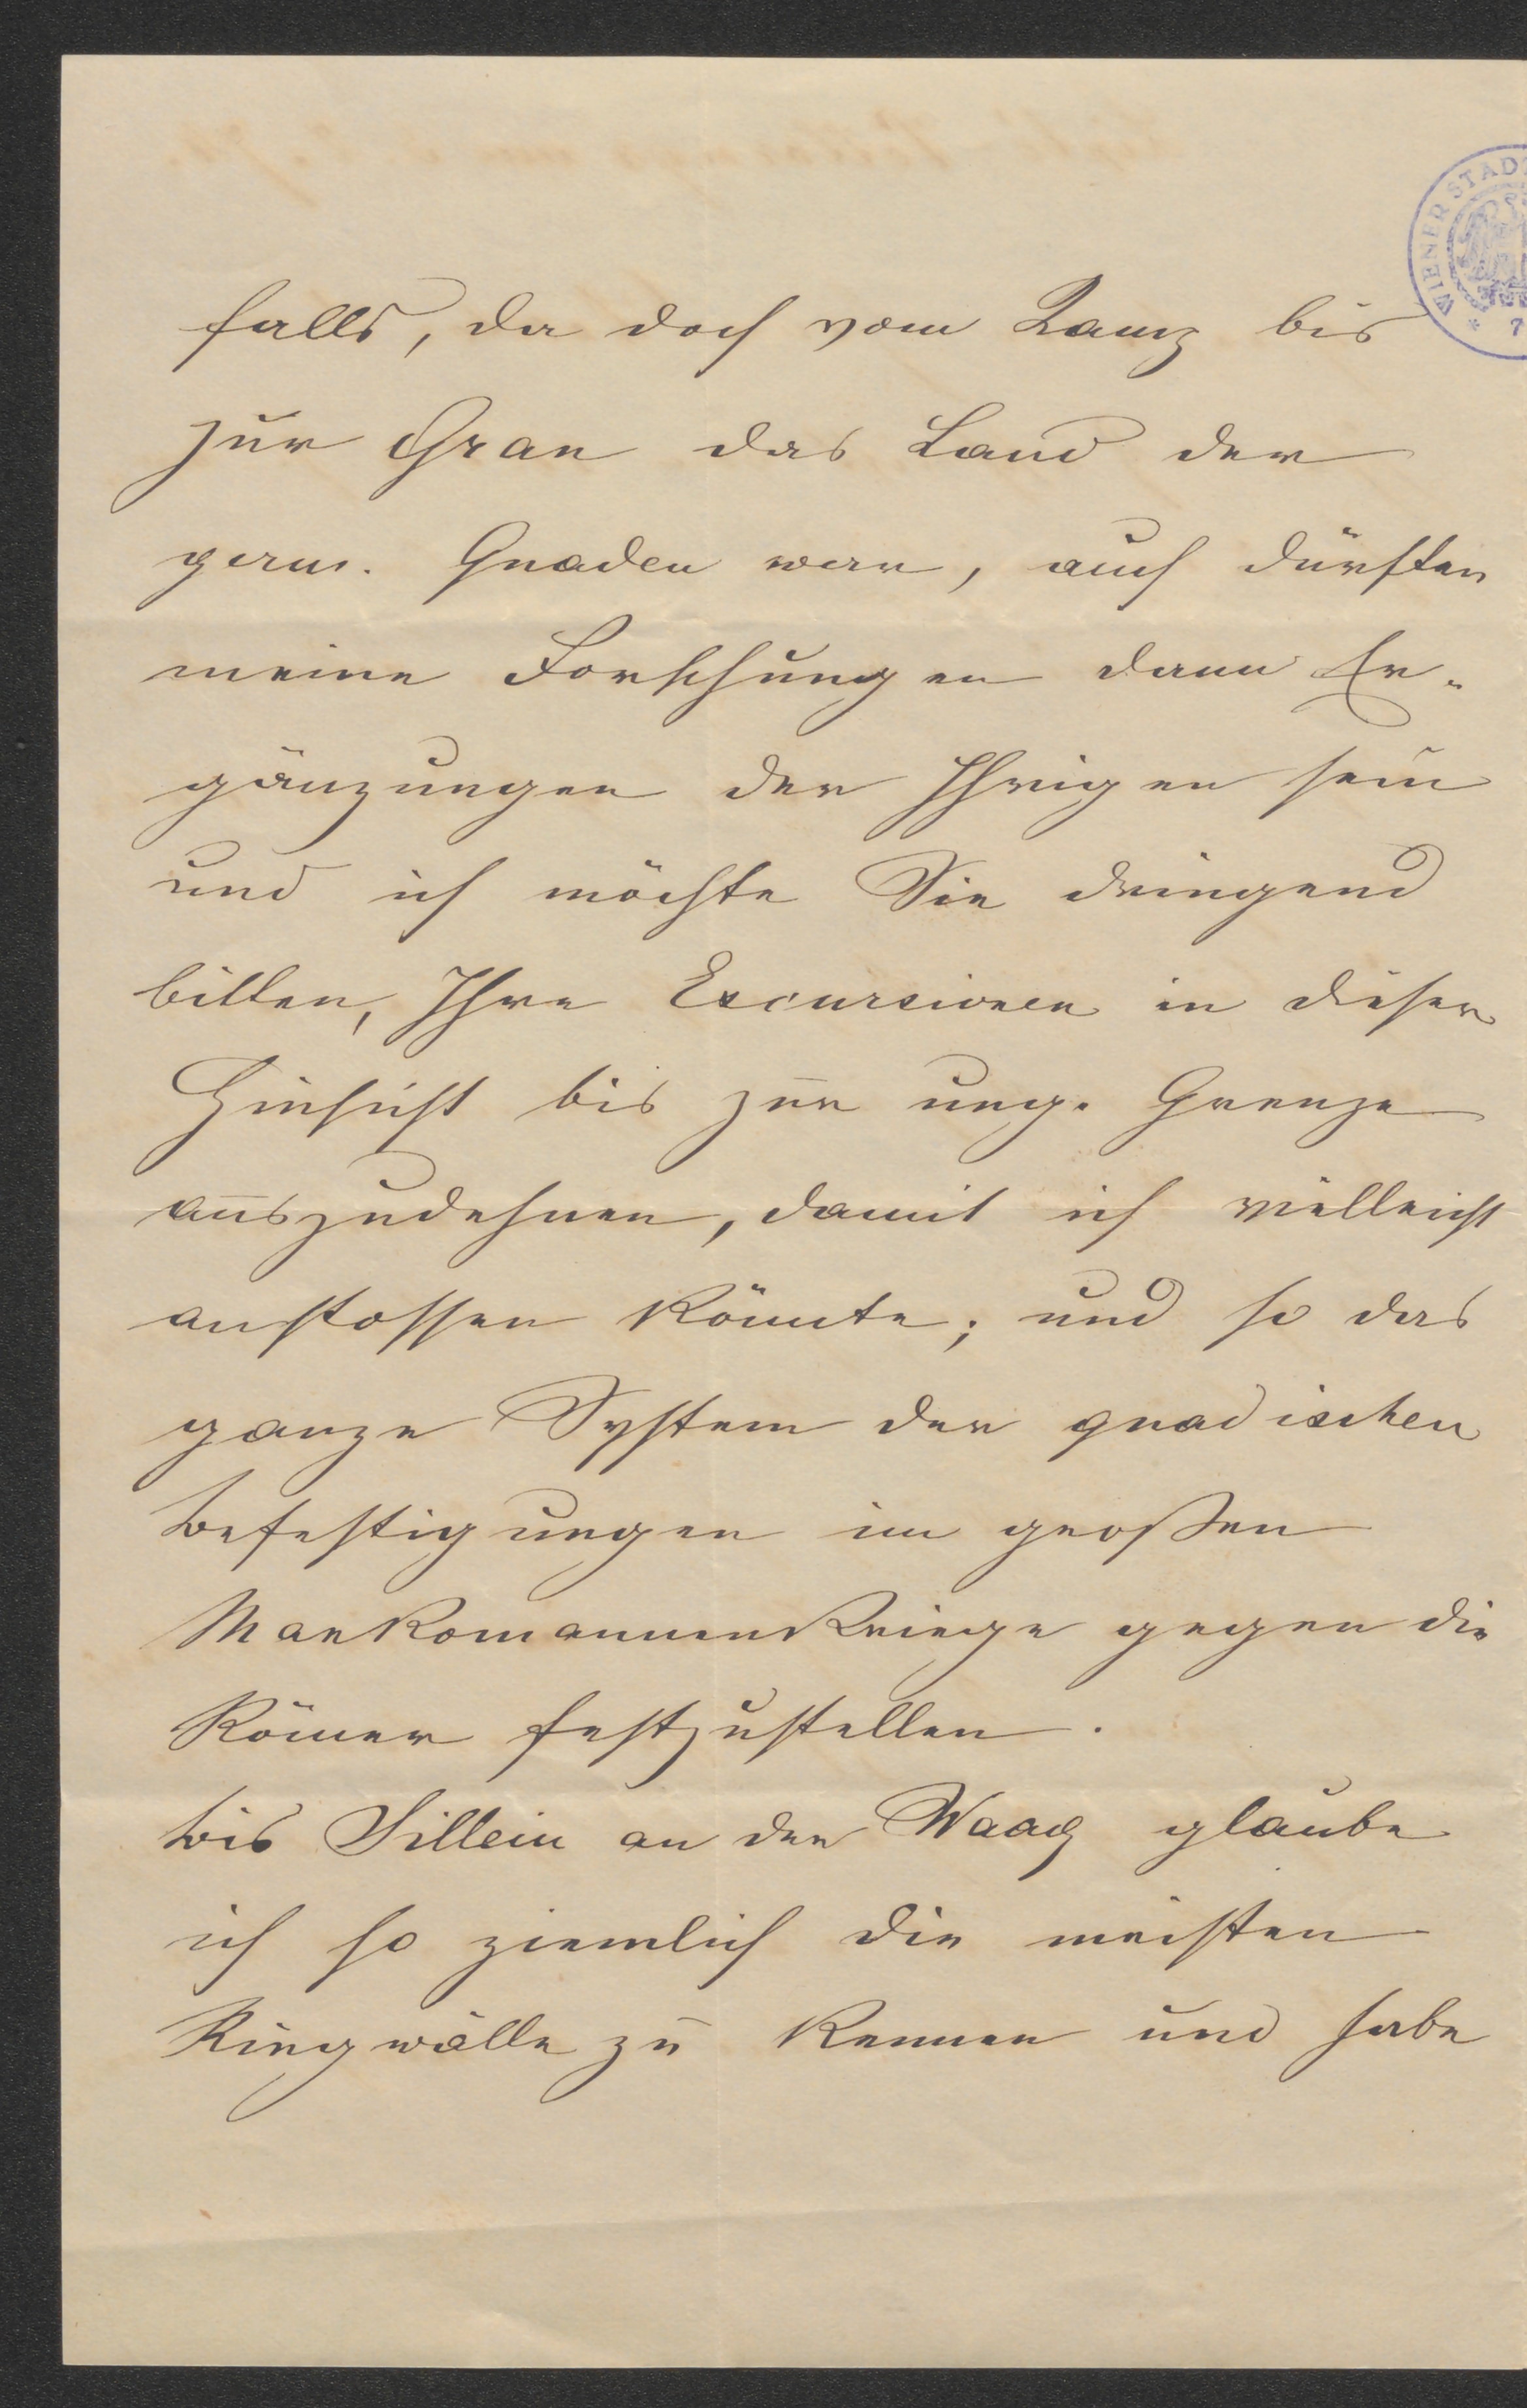 falls, da doch vom Kamp bis
zur Gran das Land der
germ. Quaden war, auch dürften
meine Forschungen dann Er-
gänzungen der Ihrigen sein
und ich möchte Sie dringend
bitten, Ihre Excursionen in dieser
Hinsicht bis zur ung. Grenze
auszudehnen, damit ich vielleicht
anstossen könnte; und so das
ganze System der quadischen
Befestigungen im großen
Markomannenkriege gegen die
Römer festzustellen.
Bis Sillein an der Waag glaube
ich so ziemlich die meisten
Ringwälle zu kennen und habe
WIENER STAD
* 7